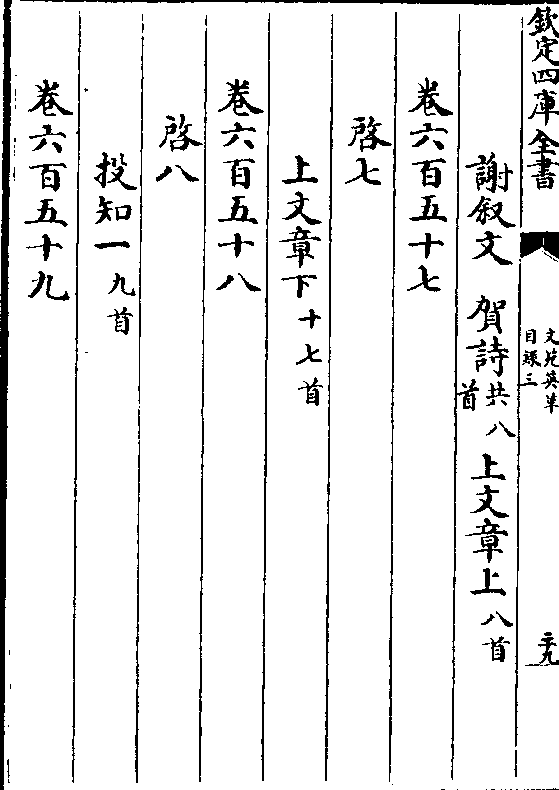 欽定四庫全書
文苑英華
目録三
二十九
謝叙文　賀詩共八首　上文章上八首
卷六百五十七
啓七
上文章下十七首
卷六百五十八
啓八
投知一九首
卷六百五十九